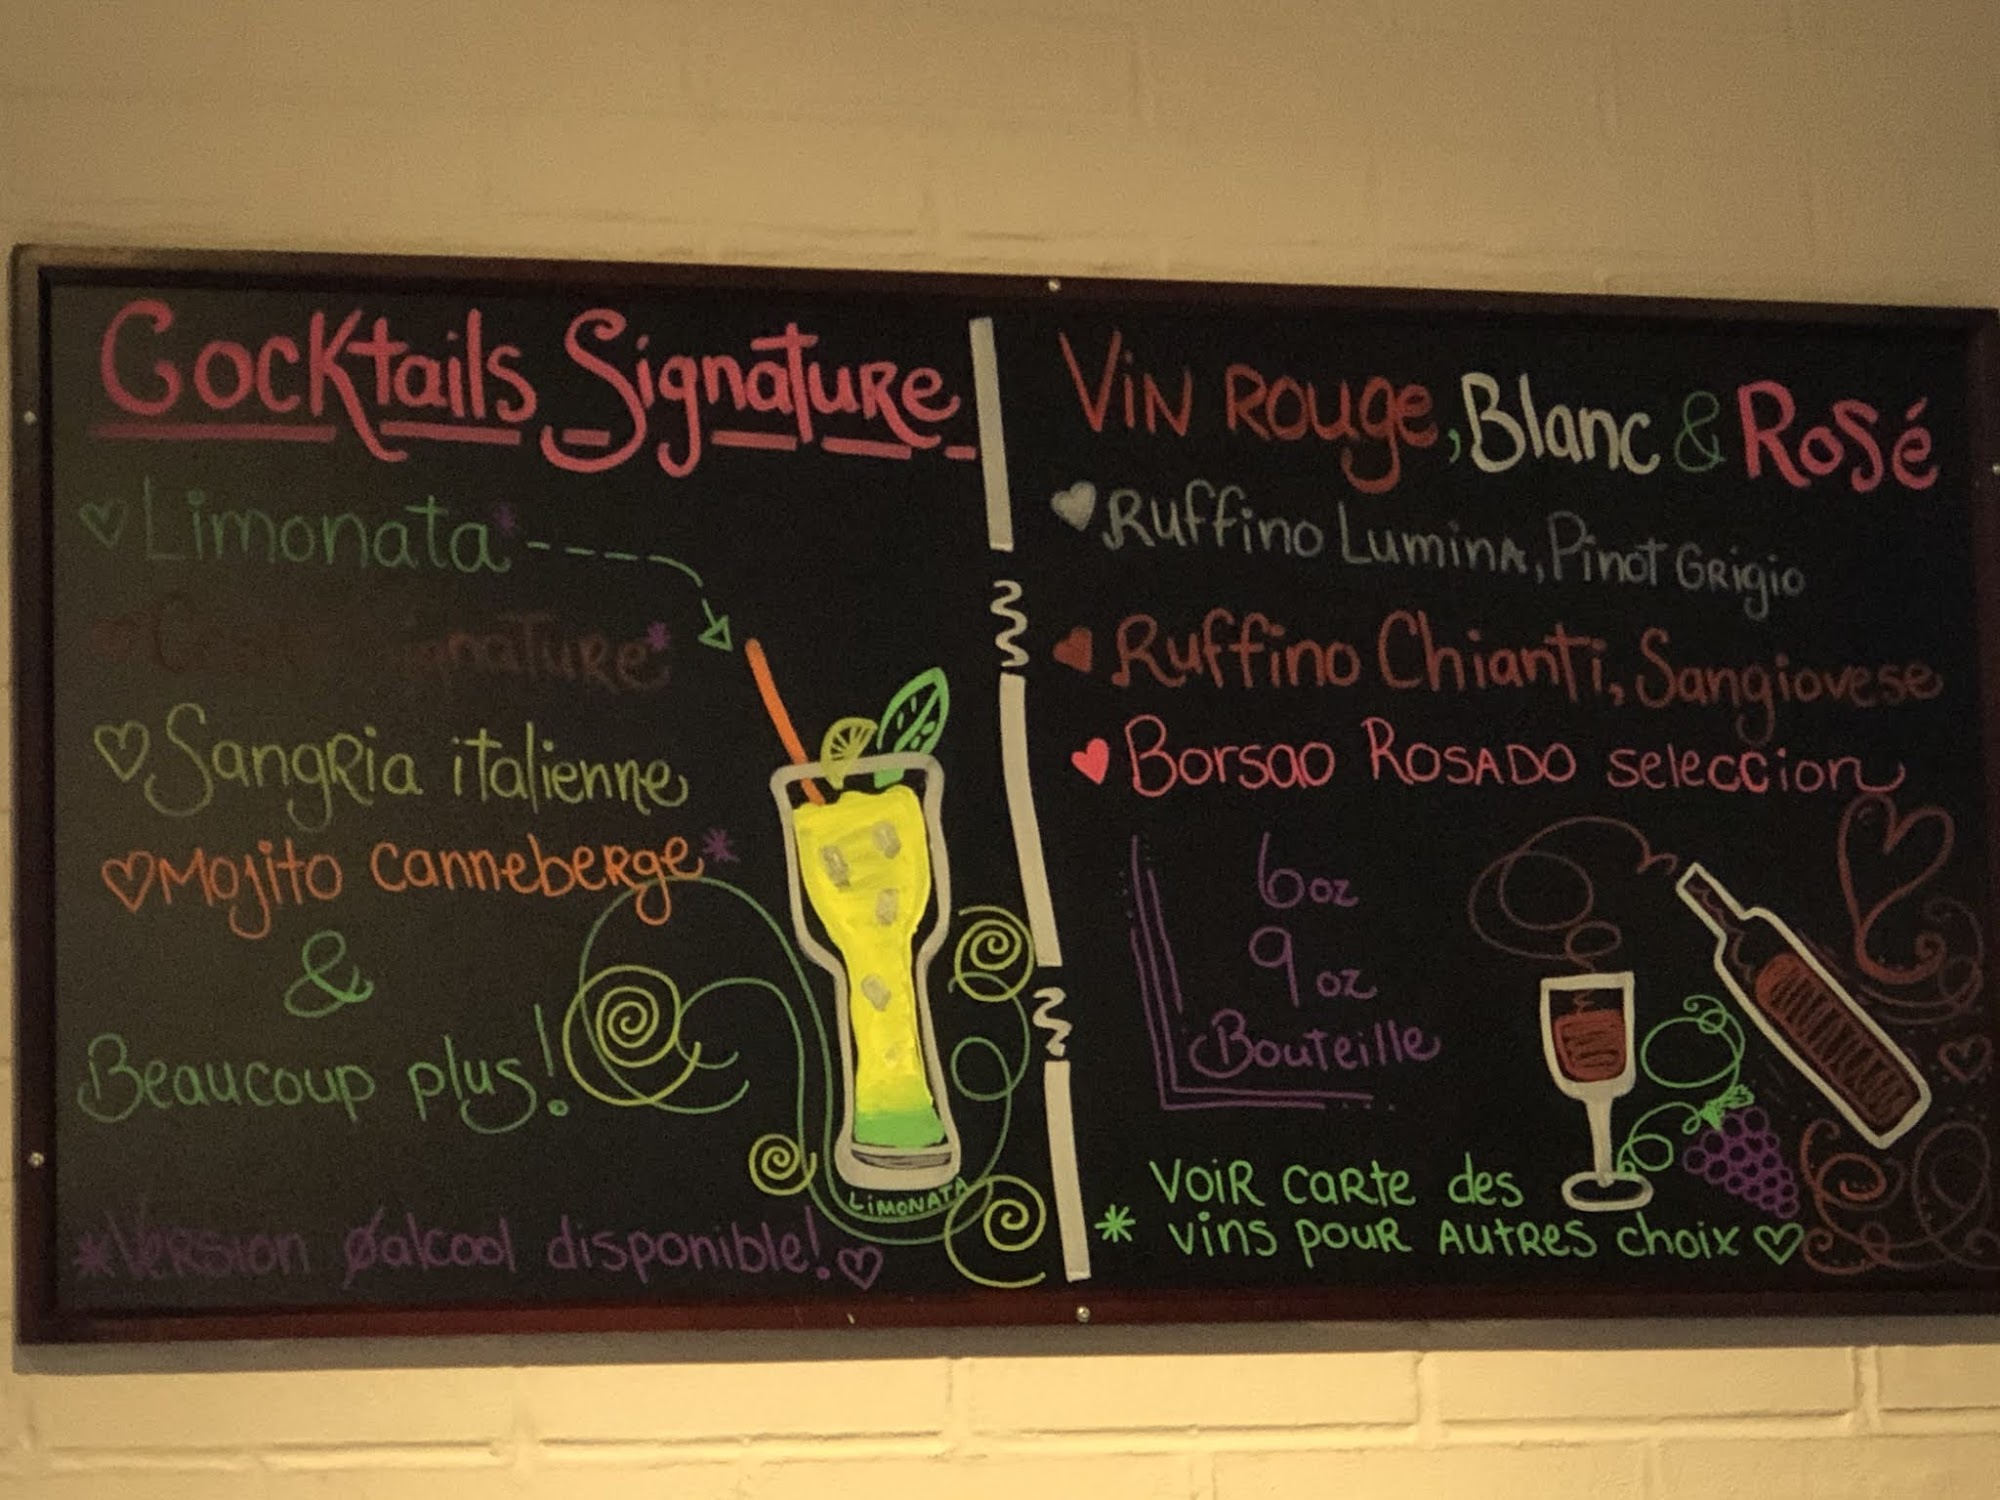 Cocktails Signature
Limonata*
Signature*
Sangria italienne
Mojito canneberge*
&
Beaucoup plus!
LIMONATA
*Version Øalcool disponible!
Vin Rouge, Blanc & Rosé
Ruffino Lumina, Pinot Grigio
Ruffino Chianti, Sangiovese
Borsao Rosado seleccion
6 oz
9 oz
Bouteille
* Voir carte des
vins pour autres choix